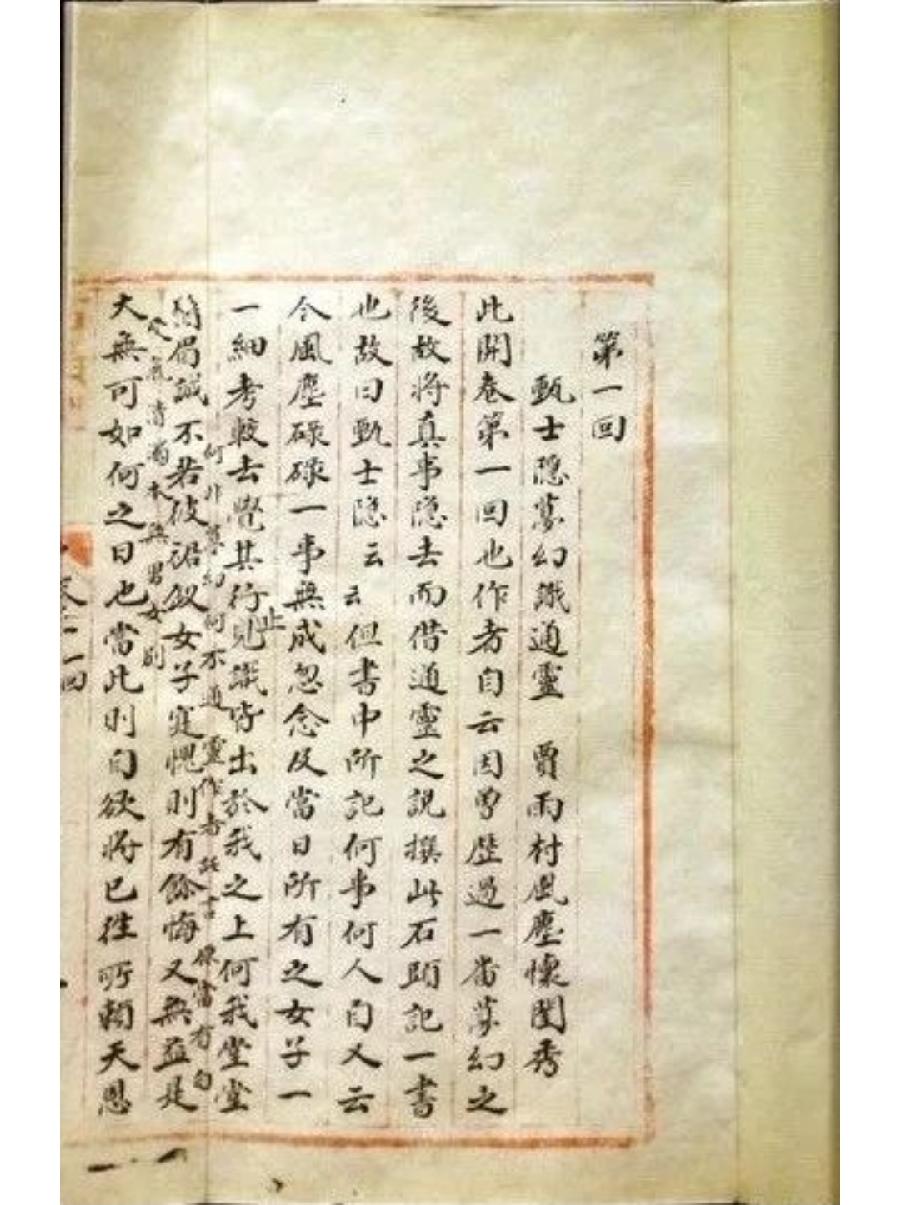 第一回
甄士隐夢幻識通靈 賈雨村風塵懷閨秀
此開卷第一回也作者自云因曾歷過一番夢幻之
後故將真事隐去而借通靈之說撰此石頭記一書
也故曰甄士隐云云但書中所記何事何人自又云
今風塵碌碌一事無成忽念及當日所有之女子一
一細考較去覺其行止見識皆出於我之上何我堂堂
何非夢幻何不通靈作者託言原當有自
鬚眉誠不若彼裙釵女子寔愧則有餘悔又無益是
受氣清濁本無男女別
大無可如何之日也當此則自欲將已往所賴天恩